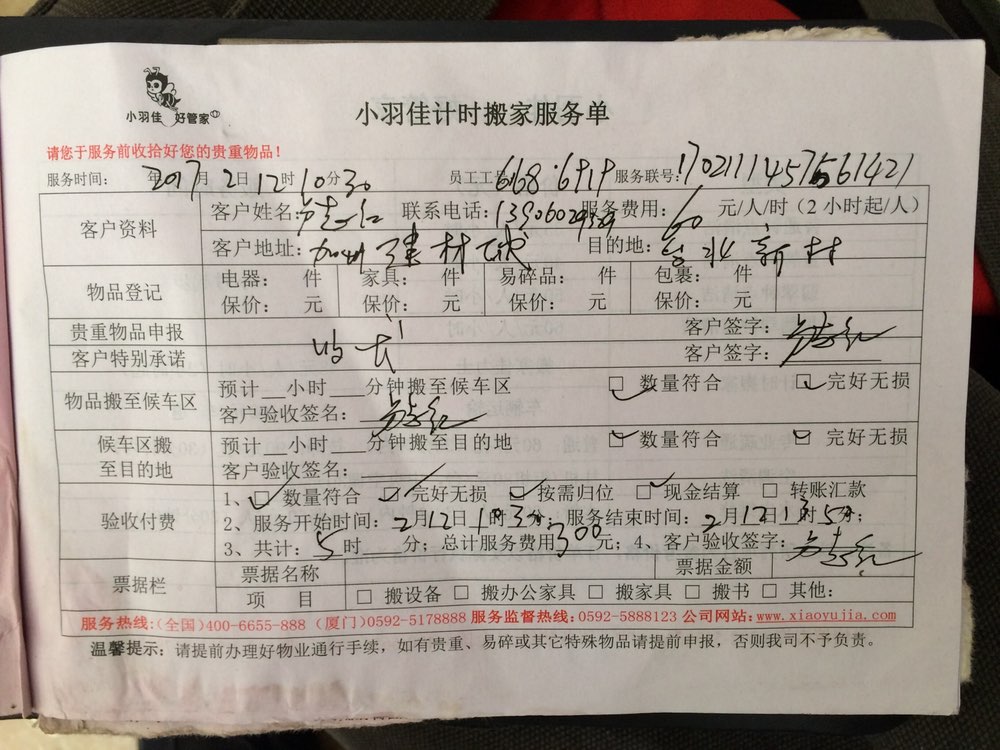 小羽佳 好管家
小羽佳计时搬家服务单
请您于服务前收拾好您的贵重物品！
服务时间： 2017年 2月 12日 10时30 员工工号 668·6919 服务联号：
客户资料 客户姓名： 联系电话： 服务费用：60 元/人/时（2小时起/人）
客户地址：加州建材城 目的地：台北新村
物品登记 电器： 件 家具： 件 易碎品： 件 包裹： 件
保价： 元 保价： 元 保价： 元 保价： 元
贵重物品申报 客户签字：
客户特别承诺 客户签字：
物品搬至候车区 预计__小时___分钟搬至候车区 ☑ 数量符合 ☑ 完好无损
客户验收签名：
候车区搬至目的地 预计__小时___分钟搬至目的地 ☑ 数量符合 ☑ 完好无损
客户验收签名：
验收付费 1、☑ 数量符合 ☑ 完好无损 ☑ 按需归位 ☑ 现金结算 □ 转账汇款
2、服务开始时间：2月12日 时 分；服务结束时间：2月12日 时5分；
3、共计：5时___分；总计服务费用300元；4、客户验收签字：
票据栏 票据名称 票据金额
项 目 □ 搬设备 □ 搬办公家具 □ 搬家具 □ 搬书 □ 其他：
服务热线：(全国)400-6655-888 (厦门)0592-5178888 服务监督热线：0592-5888123 公司网站：www.xiaoyujia.com
温馨提示：请提前办理好物业通行手续，如有贵重、易碎或其它特殊物品请提前申报，否则我司不予负责。